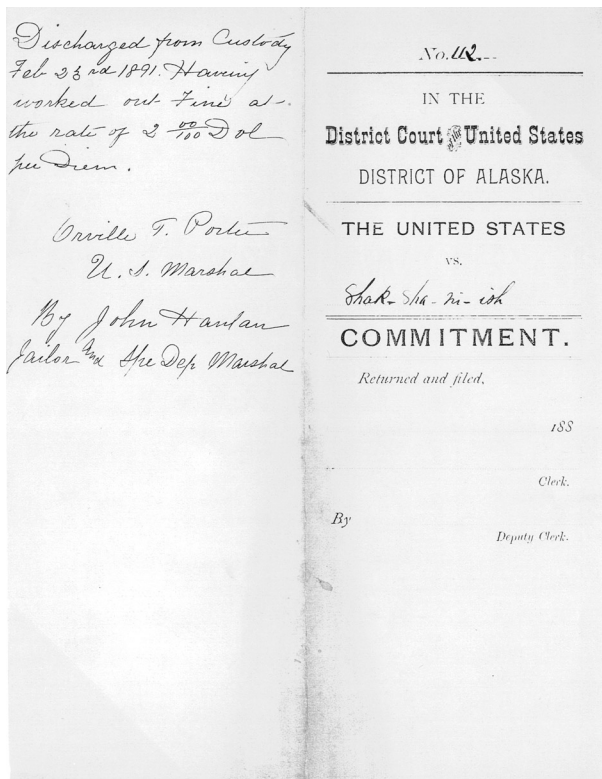 Discharged from Custody
Feb 23rd 1891. Having
worked out Fine at
the rate of 2 00/100 Dol
per Diem.
Orville T. Porter
U. S. Marshal
By John Hanlan
Jailor and Spe Dep Marshal
No. 42.
IN THE
District Court of the United States
DISTRICT OF ALASKA.
THE UNITED STATES
VS.
Shak-Sha-ni-ish
COMMITMENT.
Returned and filed,
188
Clerk.
By
Deputy Clerk.